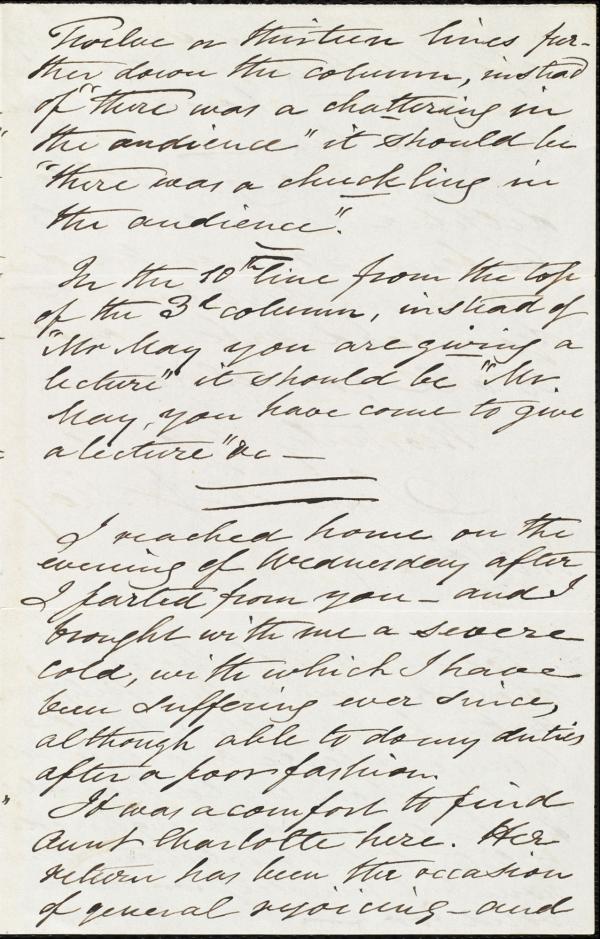 Twelve or thirteen lines fur-
ther down the column, instead
of "there was a chattering in
the audience" it should be
"there was a chuckling in
the audience".
In the 10th line from the top
of the 3d column, instead of
"Mr May you are giving a
lecture" it should be "Mr.
May, you have come to give
a lecture" &c —
I reached home on the
evening of Wednesday after
I parted from you — and I
brought with me a severe
cold, with which I have
been suffering ever since,
although able to do my duties
after a poor fashion.
It was a comfort to find
Aunt Charlotte here. Her
return has been the occasion
of general rejoicing — and